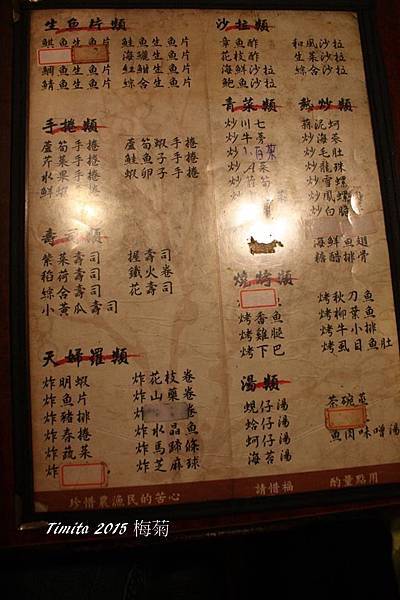 生魚片類
鮭魚生魚片
海鱺生魚片
鯛魚生魚片
紅魽生魚片
鯖魚生魚片
綜合生魚片
手捲類
蘆筍手捲
蘆筍蝦手捲
芹菜手捲
鮭魚手捲
水果手捲
蝦卵手捲
壽司類
紫菜壽司
握壽司
稻荷壽司
鐵火卷
綜合壽司
花壽司
小黃瓜壽司
天婦羅類
炸明蝦
炸花枝卷
炸魚片
炸山藥卷
炸豬排
炸
炸春捲
炸水晶魚條
炸蔬菜
炸馬蹄條
炸
炸芝麻球
沙拉類
章魚酢
和風沙拉
花枝酢
生菜沙拉
海鮮沙拉
綜合沙拉
鮑魚沙拉
青菜類
熱炒類
炒川七
蒜泥蚵
炒牛蒡
炒海茶
炒毛肚
炒龍珠
炒雪螺
炒鳳螺
海鮮魚翅
糖醋排骨
燒烤類
烤秋刀魚
烤香魚
烤柳葉魚
烤雞腿
烤牛小排
烤下巴
烤虱目魚肚
湯類
蜆仔湯
茶碗蒸
蛤仔湯
蚵仔湯
魚肉味噌湯
海苔湯
珍惜農漁民的苦心
請惜福
酌量點用
Timita 2015 梅菊